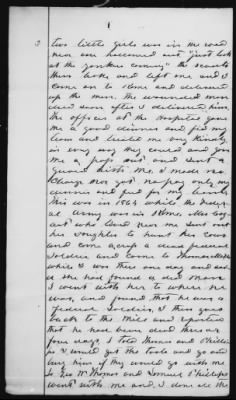 3
two little girls was in the road
near one hollowed out "just look
at the yankee coming" the scouts
then broke and left me and I
come on to Rome and delivered
up the men. The wounded man
died soon after I delivered him,
the officers at the Hospital gave
me a good dinner and fed my
team and treated me very kindly
in every way they could and gave
me a pass out and sent a
guard with me. I made no
charge nor got no pay only my
dinner and feed for my horses
This was in 1864 while the Feder-
al Army was in Rome. Mrs
who lived near me sent out
his daughter to hunt his cows
and come across a dead federal
Soldier and come to Thomas Mills
while I was there one day and said
she had found a dead man.
I went with her to where he
was, and found that he was a
Federal Soldier, I then goes
back to the Mill and reported
that he had been dead three or
four days I told Thomas and Phillips
if I would get the tools and go and
bury him if they would go with me
So Geo W Thomas and Samuel Phillips
went with me and I done all the